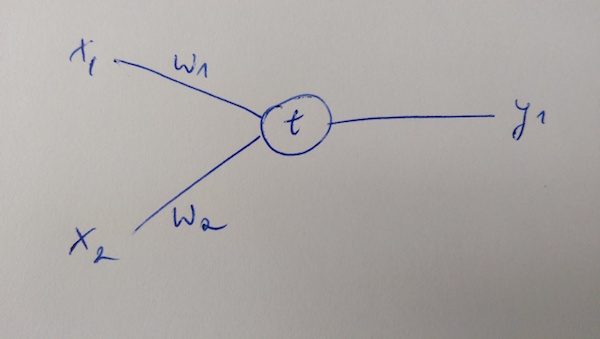 x1
w1
t
y1
x2
w2